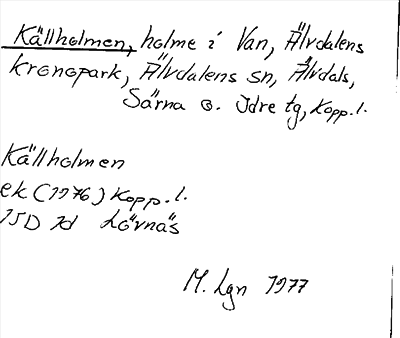 Källholmen, holme i Van, Älvdalens
kronopark, Älvdalens sn, Älvdals,
Särna o. Idre tg, Kopp. l.
Källholmen
ek (1976) Kopp. l.
15D 7d Lövnäs
M. Lgn 1977